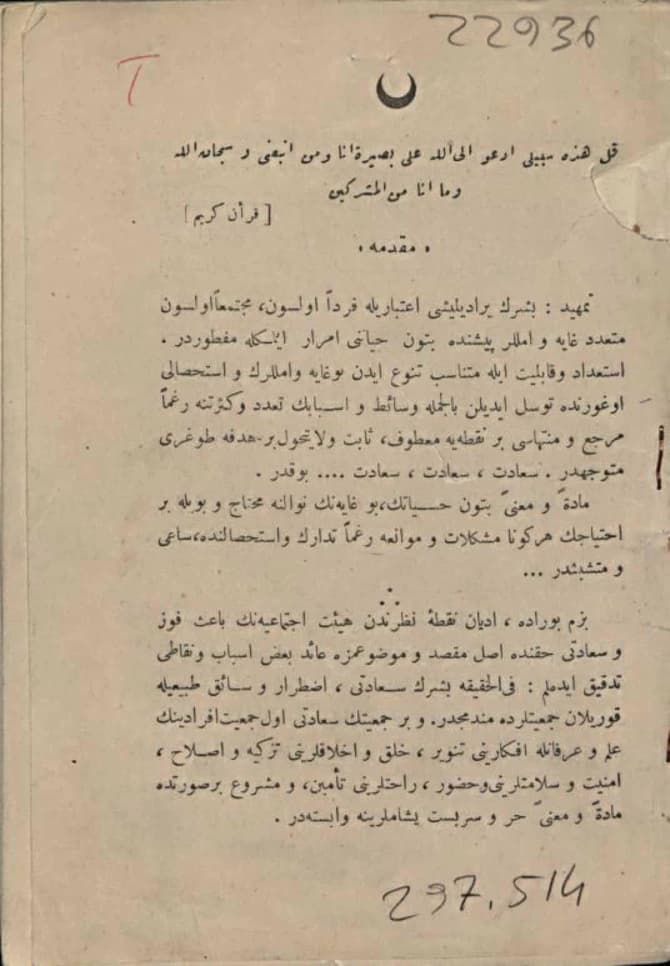 22936
T
قل هذه سبيلى ادعو الى الله على بصيرة انا ومن اتبعنى و سبحان الله
وما انا من المشركين
[ قرآن كريم ]
« مقدمه »
تمهيد : بشرك يراديليشى اعتباريله فرداً اولسون، مجتمعاً اولسون
متعدد غايه و امللر پيشنده بتون حياتى امرار ايتمكله مفطوردر .
استعداد وقابليت ايله متناسب تنوع ايدن بوغايه وامللرك و استحصالى
اوغورنده توسل ايديلن بالجمله وسائط و اسبابك تعدد وكثرتنه رغماً
مرجع و منتهاسى بر نقطه‌يه معطوف، ثابت ولايتحول بر هدفه طوغرى
متوجهدر . سعادت ، سعادت ، سعادت .... بوقدر .
مادةً و معنىً بتون حسياتك، بو غايه‌نك نوالنه محتاج و بويله بر
احتياجك هركونا مشكلات و موانعه رغماً تدارك واستحصالنده، ساعى
و متشبثدر ...
بزم بوراده ، اديان نقطهٔ نظرندن هيئت اجتماعيه‌نك باعث فوز
و سعادتى حقنده اصل مقصد و موضوعمزه عائد بعض اسباب ونقاطى
تدقيق ايده‌لم : فى الحقيقه بشرك سعادتى ، اضطرار و سائق طبيعيله
قوريلان جمعيتلرده مندمجدر. و بر جمعيتك سعادتى اول جمعيت افرادينك
علم و عرفانله افكارينى تنوير ، خلق و اخلاقلرينى تزكيه و اصلاح ،
امنيت و سلامتلرينى وحضور ، راحتلرينى تأمين، و مشروع برصورتده
مادةً و معنىً حر و سربست يشاملرينه وابسته‌در .
297.514